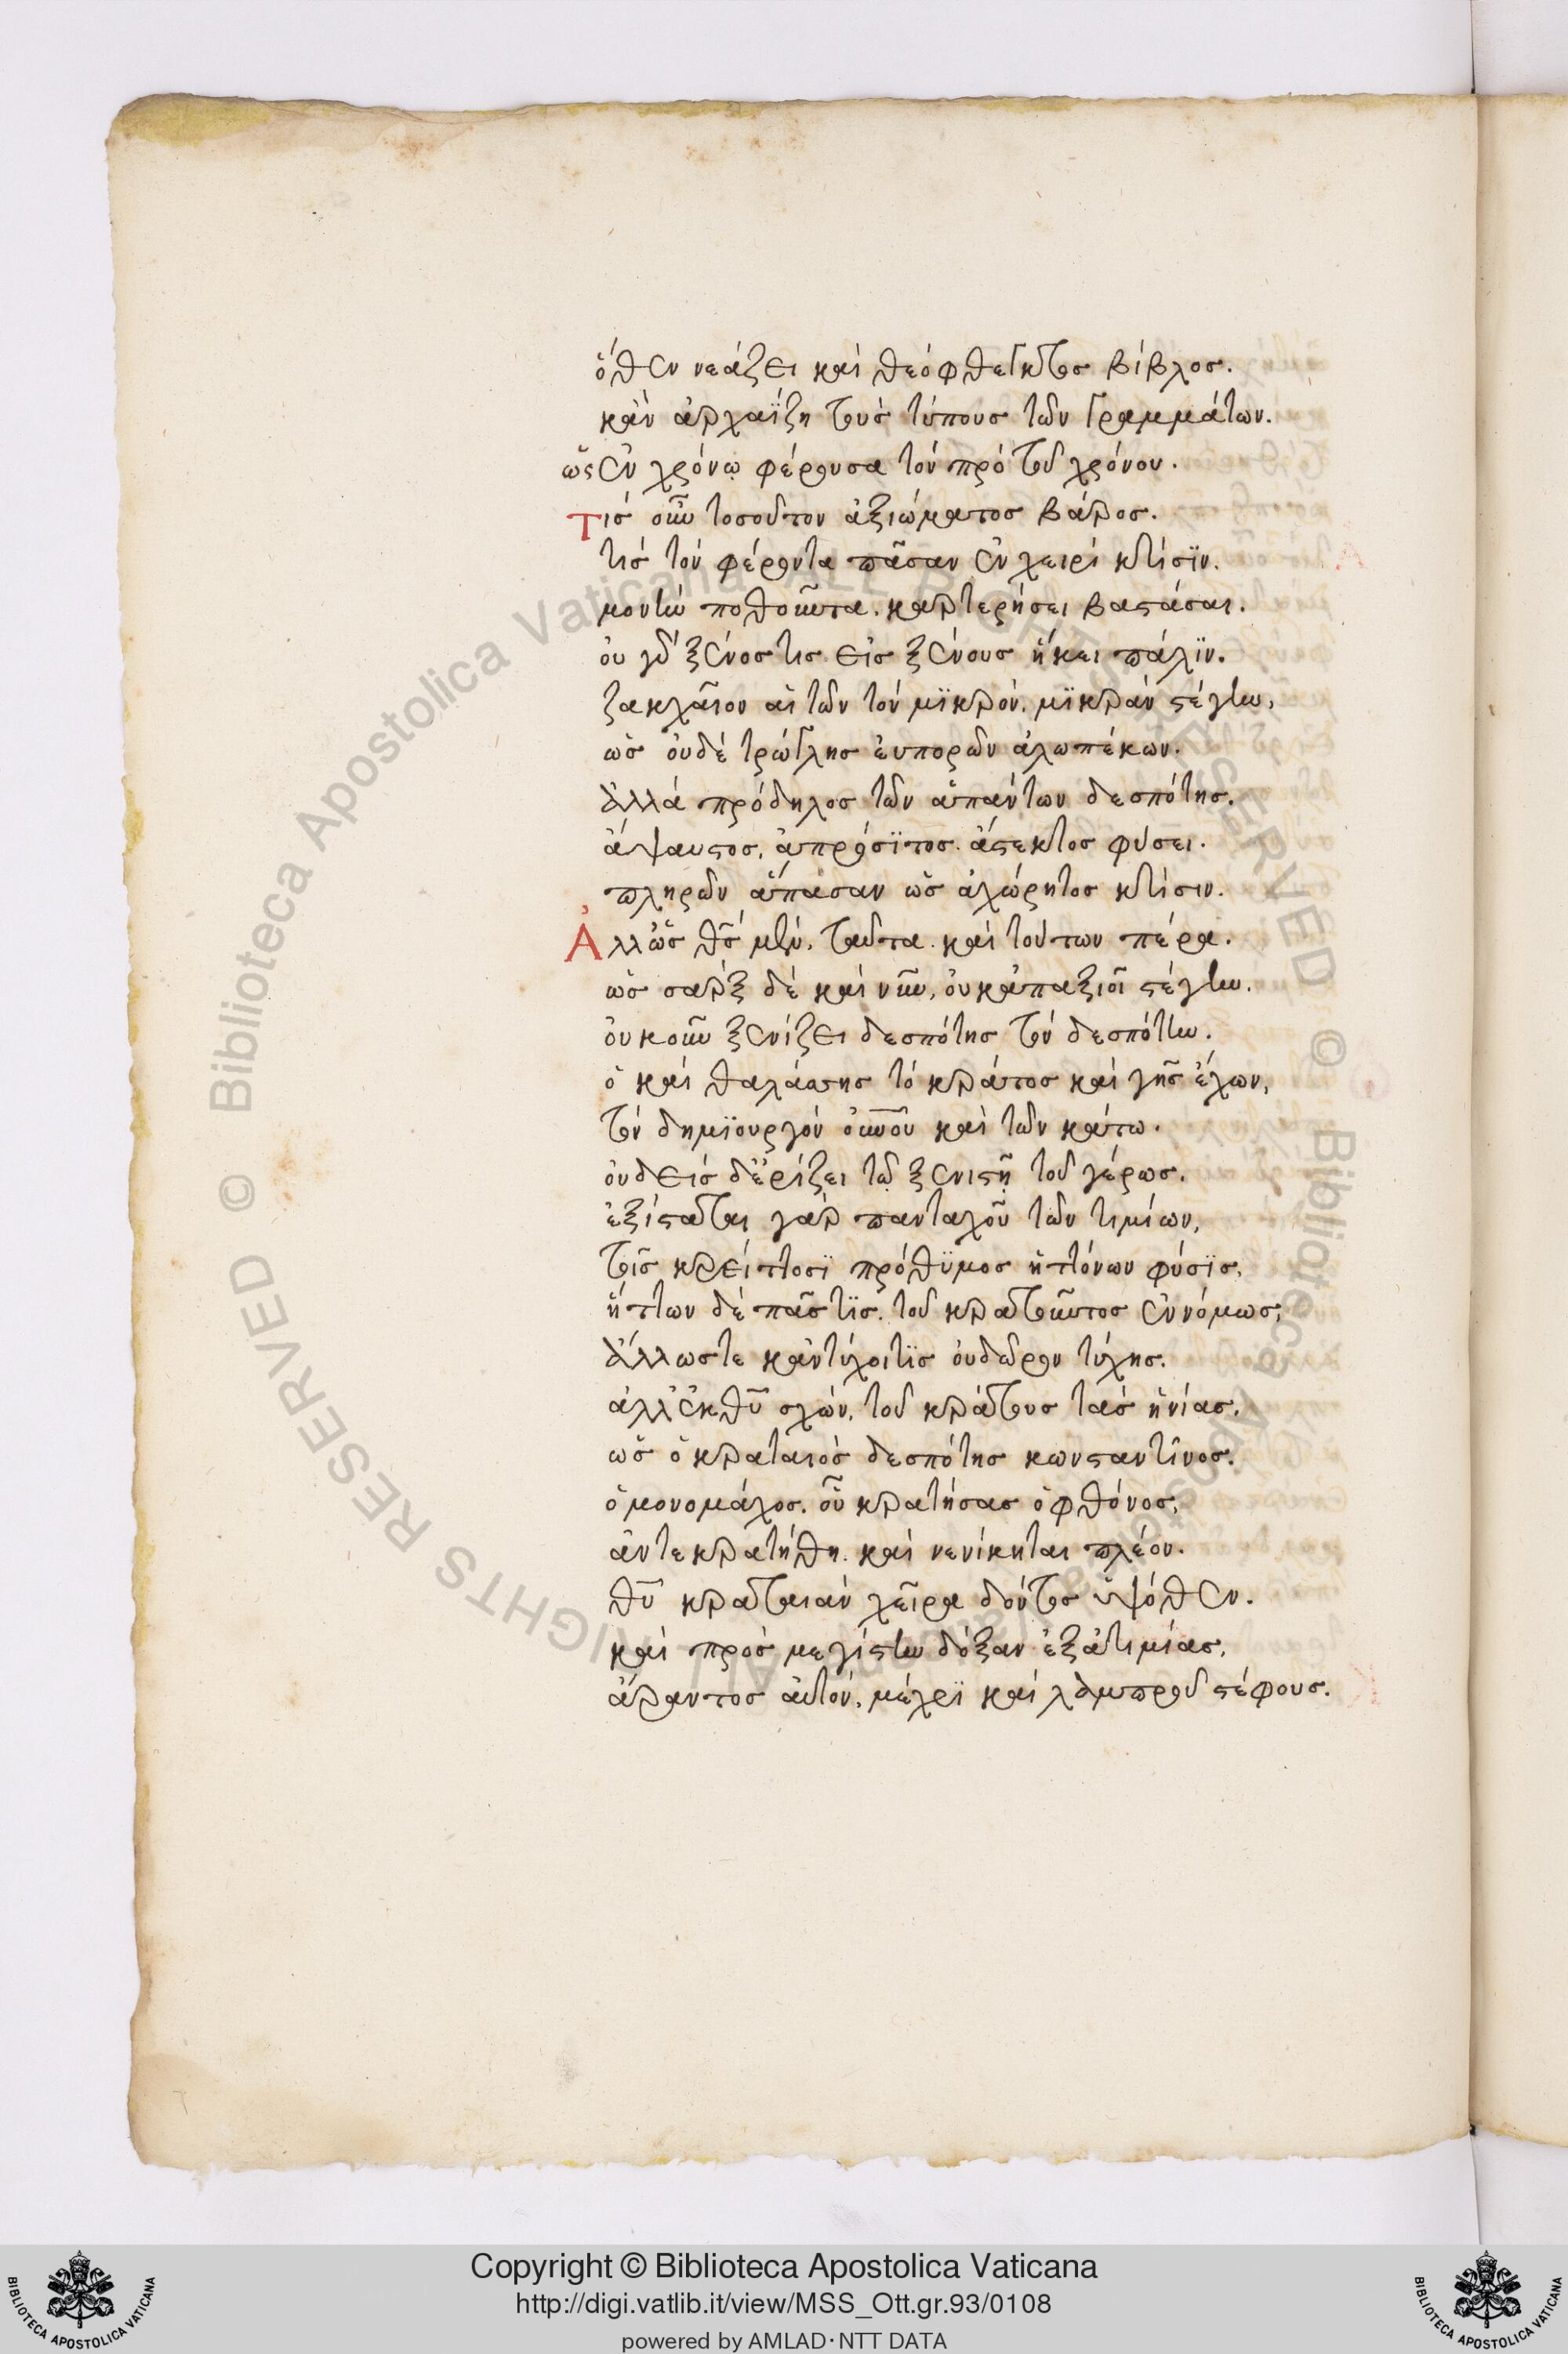 ὅθεν νεάζει καὶ θεόφθεγκτος βίβλος.
κἂν ἀρχαΐζῃ τοὺς τύπους τῶν γραμμάτων.
ὡς ἐν χρόνῳ φέρουσα τὸν πρὸ τοῦ χρόνον.
Τίς οὖν τοσοῦτον ἀξιώματος βάρος.
τίς τὸν φέροντα πᾶσαν ἐν χειρὶ κτίσϊν.
μονὴν ποθοῦντα. καρτερήσει βαστάσαι.
οὐ γὰρ ξένος τις εἰς ξένους ἥκει πάλϊν.
ζακχαῖον αἰτῶν τὸν μϊκρόν. μϊκρὰν στέγην,
ὡς οὐδὲ τρώγλης εὐπορῶν ἀλωπέκων.
ἀλλὰ πρόδηλος τῶν ἁπάντων δεσπότης.
ἄψαυστος, ἀπρόσϊτος. ἄστεκτος φύσει.
πληρῶν ἅπασαν ὡς ἀχώρητος κτίσιν.
Ἀλλ ὡς θς μὲν, ταῦτα. καὶ τούτων πέρα.
ὡς σαρξ δὲ καὶ νῦν, οὐκ ἀπαξιοῖ στέγην.
οὐκοῦν ξενίζει δεσπότης τὸν δεσπότην.
ὁ καὶ θαλάσσης τὸ κράτος καὶ γῆς ἔχων,
τὸν δημϊουργὸν οὐνοῦ καὶ τῶν κάτω.
οὐδεὶς δ ἐρίζει τῷ ξενιστῇ τοῦ γέρως.
ἐξίσταται γὰρ πανταχοῦ τῶν τιμίων,
τοῖς κρείττοσϊ πρόθϋμος ἡττόνων φύσϊς,
ἥττων δὲ πᾶς τϊς. τοῦ κρατοῦντος ἐννόμως,
ἄλλωστε κἂν τύχοι τϊς οὐ δῶρον τύχης.
ἀλλ ἐκ θυ σχὼν, τοῦ κράτους τὰς ἡνίας.
ὡς ὁ κραταιὸς δεσπότης κωνσταντῖνος.
ὁ μονομάχος. οὗ κρατήσας ὁ φθόνος,
ἀντεκρατήθη. καὶ νενίκηται πλέον.
θυ κραταιὰν χεῖρα δόντος ὑψόθεν.
καὶ πρὸς μεγίστην δόξαν ἐξ ἀτιμίας,
ἄραντος αὐτὸν, μέχρϊ καὶ λαμπροῦ στέφους.
Copyright © Biblioteca Apostolica Vaticana
http://digi.vatlib.it/view/MSS_Ott.gr.93/0108
powered by AMLAD·NTT DATA